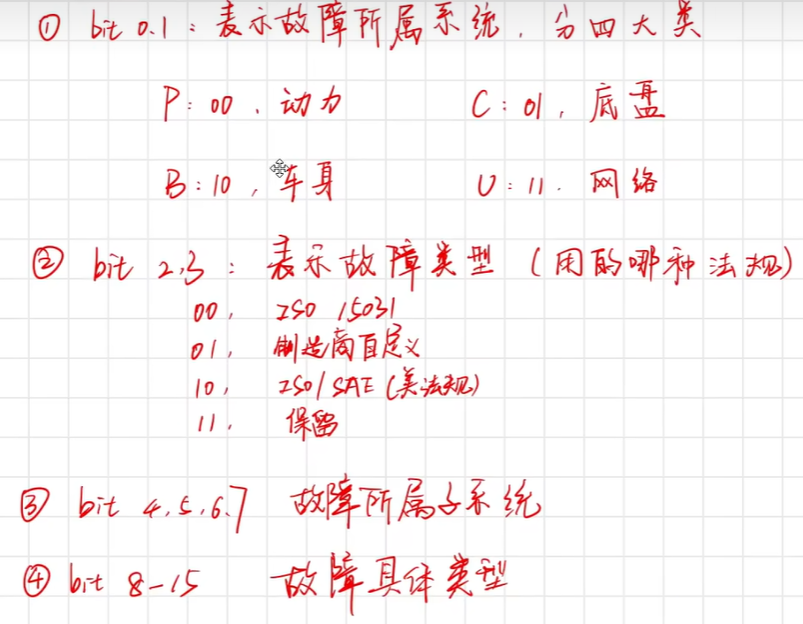 ① bit 0.1：表示故障所属系统，分四大类
P：00，动力 C：01，底盘
B：10，车身 U：11，网络
② bit 2,3：表示故障类型（用的哪种法规）
00，ISO 15031
01，制造商自定义
10，ISO/SAE（美法规）
11，保留
③ bit 4,5,6,7 故障所属子系统
④ bit 8-15 故障具体类型